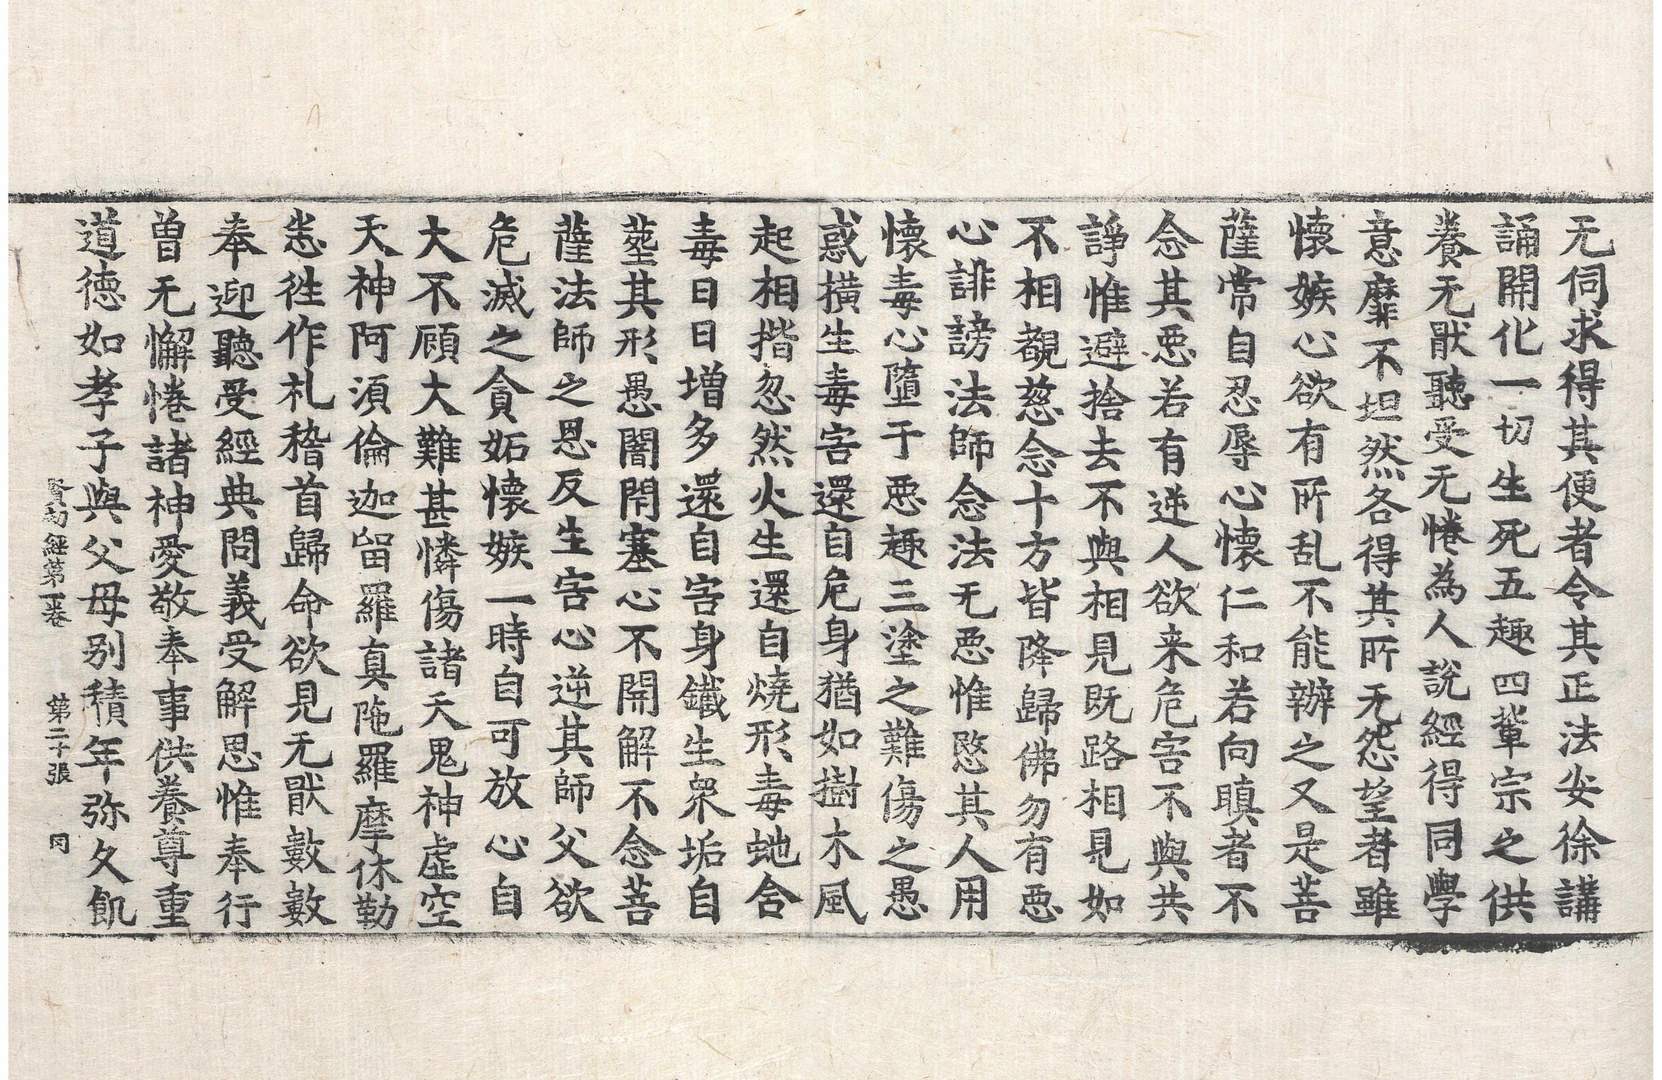 无伺求得其便者令其正法安徐講
誦開化一切生死五趣四輩宗之供
養无猒聽受无惓為人說經得同學
意靡不坦然各得其所无怨望者雖
懷嫉心欲有所乱不能辦之又是菩
薩常自忍辱心懷仁和若向瞋者不
念其惡若有逆人欲来危害不與共
諍惟避捨去不與相見既路相見如
不相覩慈念十方皆降歸佛勿有惡
心誹謗法師念法无惡惟愍其人用
懷毒心墮于惡趣三塗之難傷之愚
惑橫生毒害還自危身猶如樹木風
起相揩忽然火生還自燒形毒虵含
毒日日增多還自害身鐵生衆垢自
瑩其形愚闇閇塞心不開解不念菩
薩法師之恩反生害心逆其師父欲
危滅之貪妬懷嫉一時自可放心自
大不顧大難甚憐傷諸天鬼神虛空
天神阿須倫迦留羅真陁羅摩休勒
悉徃作礼稽首歸命欲見无猒數數
奉迎聽受經典問義受解恩惟奉行
曽无懈惓諸神愛敬奉事供養尊重
道德如孝子與父母别積年弥久飢
賢劫經第一卷　第二十張　同